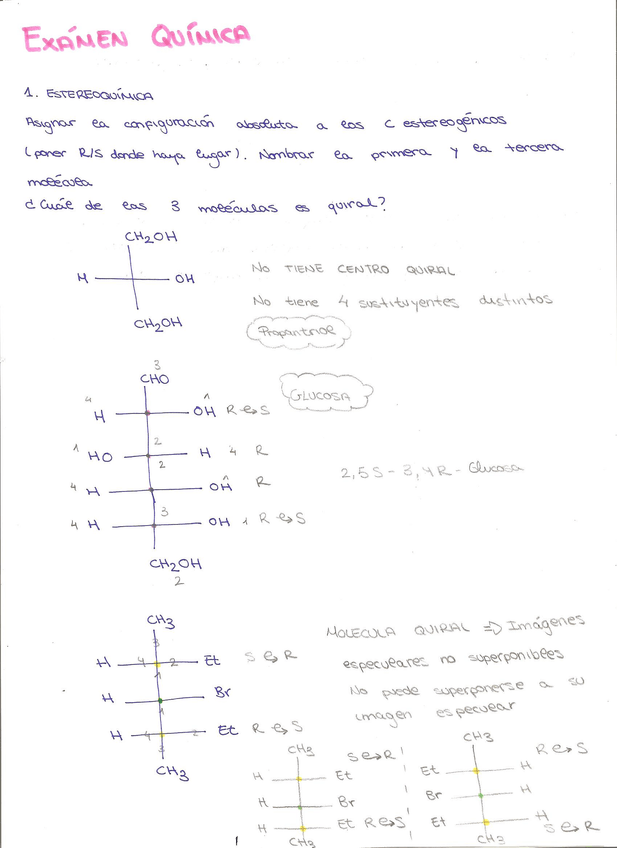 EXÁMEN QUÍMICA
1. ESTEREOQUÍMICA
Asignar la configuración absoluta a los C estereogénicos
(poner R/S donde haya lugar). Nombrar la primera y la tercera
molécula
¿Cuál de las 3 moléculas es quiral?
CH2OH
H OH
CH2OH
NO TIENE CENTRO QUIRAL
No tiene 4 sustituyentes distintos
Propantriol
3
CHO
4 H OH 1 R↔S
GLUCOSA
1 HO 2 H 4 R
2
4 H OH 1 R
2,5S - 3,4R - Glucosa
3
4 H OH 1 R↔S
CH2OH
2
CH3
3
H 4 2 Et S↔R
1
H Br
1
H 4 2 Et R↔S
3
CH3
MOLECULA QUIRAL ⇒ Imágenes
especulares no superponibles
No puede superponerse a su
imagen especular
CH3 S↔R
H Et
H Br
H Et R↔S
CH3
CH3 R↔S
Et H
Br H
Et H S↔R
CH3
1